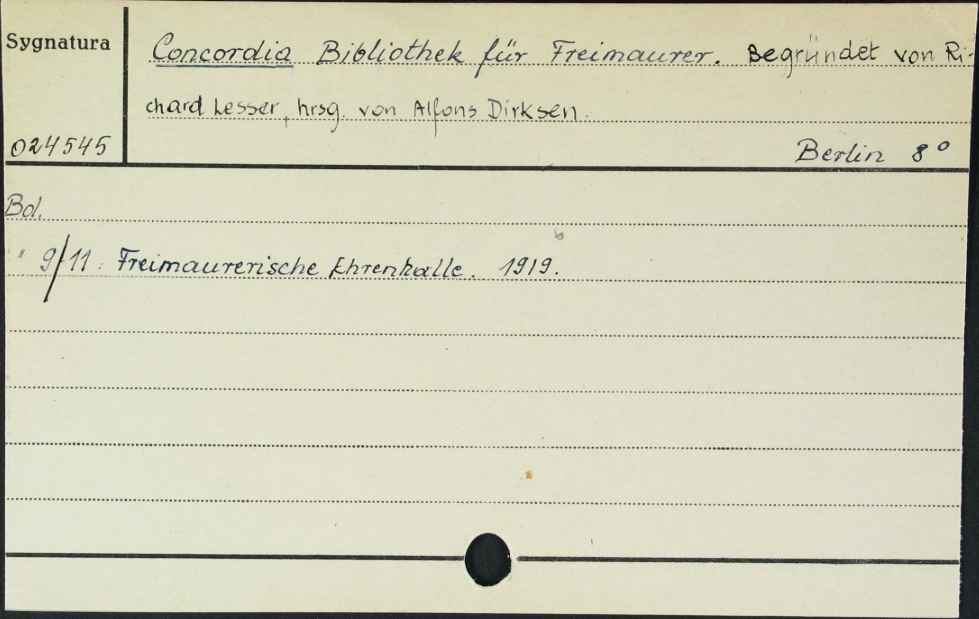 Sygnatura
Concordia Bibliothek für Freimaurer. Begründet von Ri-
chard Lesser, hrsg. von Alfons Dirksen.
024545
Berlin 8°
Bd.
" 9/11. Freimaurerische Ehrenhalle. 1919.